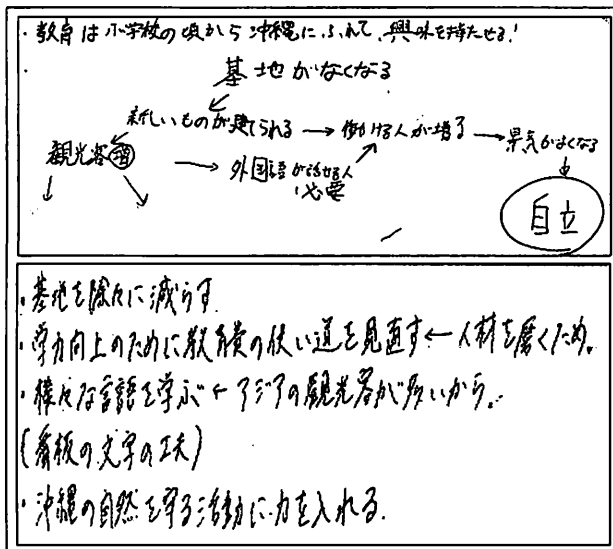 ・教育は小学校の頃から沖縄にふれて、興味を持たせる！
基地がなくなる
新しいものが建てられる → 働ける人が増える → 景気がよくなる
観光客㊥増 → 外国語が話せる人
必要
自立
・基地を除々に減らす
・学力向上のために教育費の使い道を見直す ← 人材を磨くため。
・様々な言語を学ぶ ← アジアの観光客が多いから。
(看板の文字の工夫)
・沖縄の自然を守る活動に力を入れる.